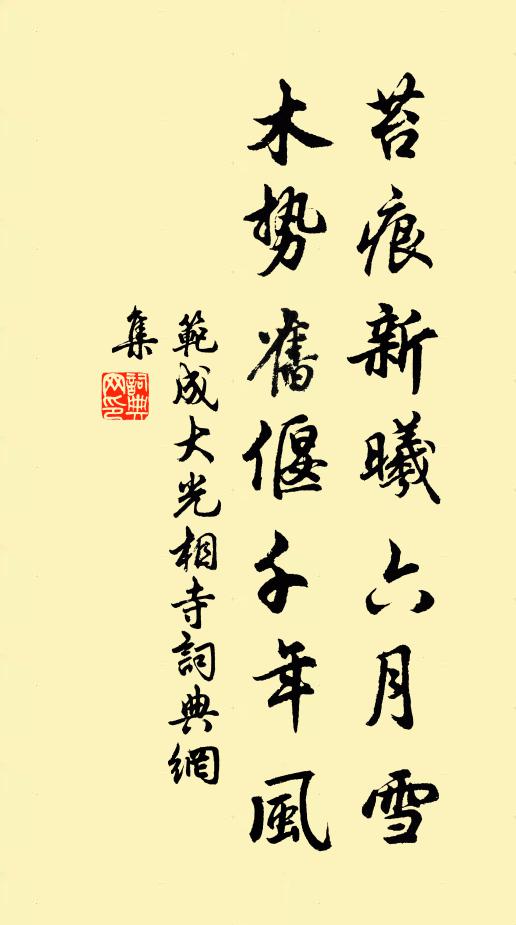 苔痕新曦六月雪
木勢舊偃千年風
範成大光相寺詞典網
集
詞典
网印